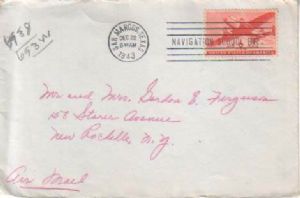 6938
693W
SAN MARCOS, TEXAS
DEC 22
AM
1943
NAVIGATION SCHOOL
Mr and Mrs. Gordon E. Ferguson
153 Storer Avenue
New Rochelle, N.Y.
Air Mail